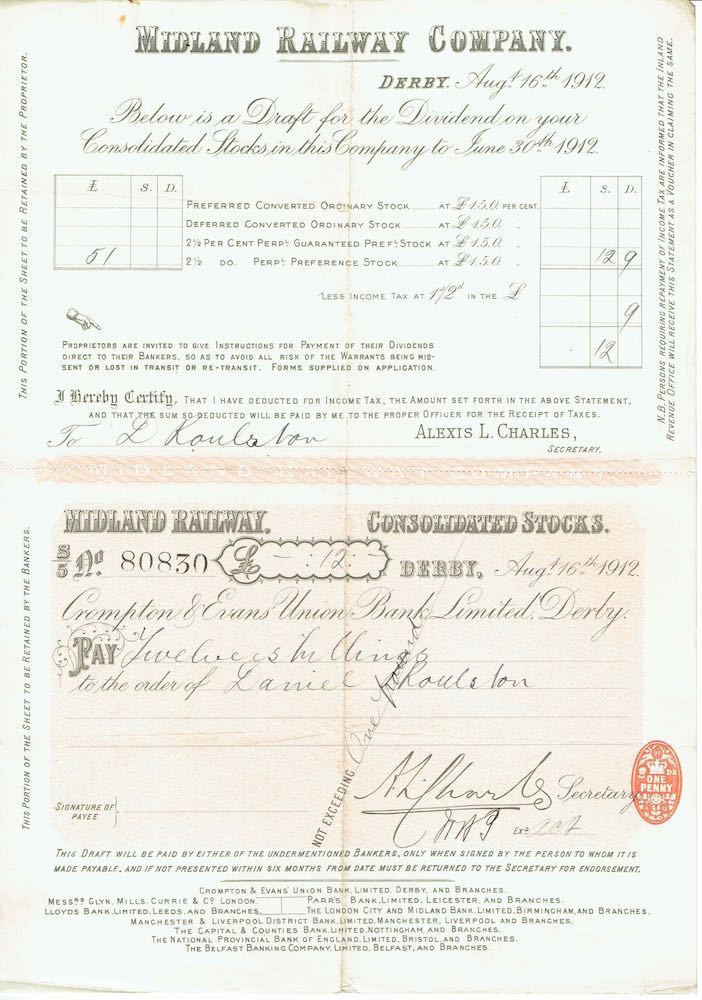 MIDLAND RAILWAY COMPANY.
DERBY. Augt. 16th 1912.
Below is a Draft for the Dividend on your
Consolidated Stocks in this Company to June 30th 1912.
£ S. D.
£ S. D.
PREFERRED CONVERTED ORDINARY STOCK AT £1.5.0. PER CENT.
DEFERRED CONVERTED ORDINARY STOCK AT £1.5.0. "
2½ PER CENT PERPL. GUARANTEED PREFCE. STOCK AT £1.5.0. "
51 2½ DO. PERPL. PREFERENCE STOCK AT £1.5.0. " 12 9
LESS INCOME TAX AT 1s/2d IN THE £ 9
12
PROPRIETORS ARE INVITED TO GIVE INSTRUCTIONS FOR PAYMENT OF THEIR DIVIDENDS
DIRECT TO THEIR BANKERS, SO AS TO AVOID ALL RISK OF THE WARRANTS BEING MIS-
SENT OR LOST IN TRANSIT OR RE-TRANSIT. FORMS SUPPLIED ON APPLICATION.
I Hereby Certify, THAT I HAVE DEDUCTED FOR INCOME TAX, THE AMOUNT SET FORTH IN THE ABOVE STATEMENT,
AND THAT THE SUM SO DEDUCTED WILL BE PAID BY ME TO THE PROPER OFFICER FOR THE RECEIPT OF TAXES.
To D Roulston
ALEXIS L. CHARLES,
SECRETARY.
THIS PORTION OF THE SHEET TO BE RETAINED BY THE PROPRIETOR.
N.B. PERSONS REQUIRING REPAYMENT OF INCOME TAX ARE INFORMED THAT THE INLAND
REVENUE OFFICE WILL RECEIVE THIS STATEMENT AS A VOUCHER IN CLAIMING THE SAME.
MIDLAND RAILWAY COMPANY
MIDLAND RAILWAY. CONSOLIDATED STOCKS.
S/5 No. 80830 £ - : 12 : - DERBY, Augt. 16th 1912.
Crompton & Evans' Union Bank Limited, Derby.
PAY Twelve shillings
to the order of Daniel Roulston
NOT EXCEEDING One pound
A. L. Charles Secretary
ONE PENNY
SIGNATURE OF PAYEE
Exd.
THIS PORTION OF THE SHEET TO BE RETAINED BY THE BANKERS.
THIS DRAFT WILL BE PAID BY EITHER OF THE UNDERMENTIONED BANKERS, ONLY WHEN SIGNED BY THE PERSON TO WHOM IT IS
MADE PAYABLE, AND IF NOT PRESENTED WITHIN SIX MONTHS FROM DATE MUST BE RETURNED TO THE SECRETARY FOR ENDORSEMENT.
CROMPTON & EVANS' UNION BANK, LIMITED, DERBY, AND BRANCHES.
MESSRS. GLYN, MILLS, CURRIE & CO. LONDON. PARR'S BANK, LIMITED, LEICESTER, AND BRANCHES.
LLOYDS BANK, LIMITED, LEEDS, AND BRANCHES. THE LONDON CITY AND MIDLAND BANK, LIMITED, BIRMINGHAM, AND BRANCHES.
MANCHESTER & LIVERPOOL DISTRICT BANK, LIMITED, MANCHESTER, LIVERPOOL AND BRANCHES.
THE CAPITAL & COUNTIES BANK, LIMITED, NOTTINGHAM, AND BRANCHES.
THE NATIONAL PROVINCIAL BANK OF ENGLAND, LIMITED, BRISTOL, AND BRANCHES.
THE BELFAST BANKING COMPANY, LIMITED, BELFAST, AND BRANCHES.